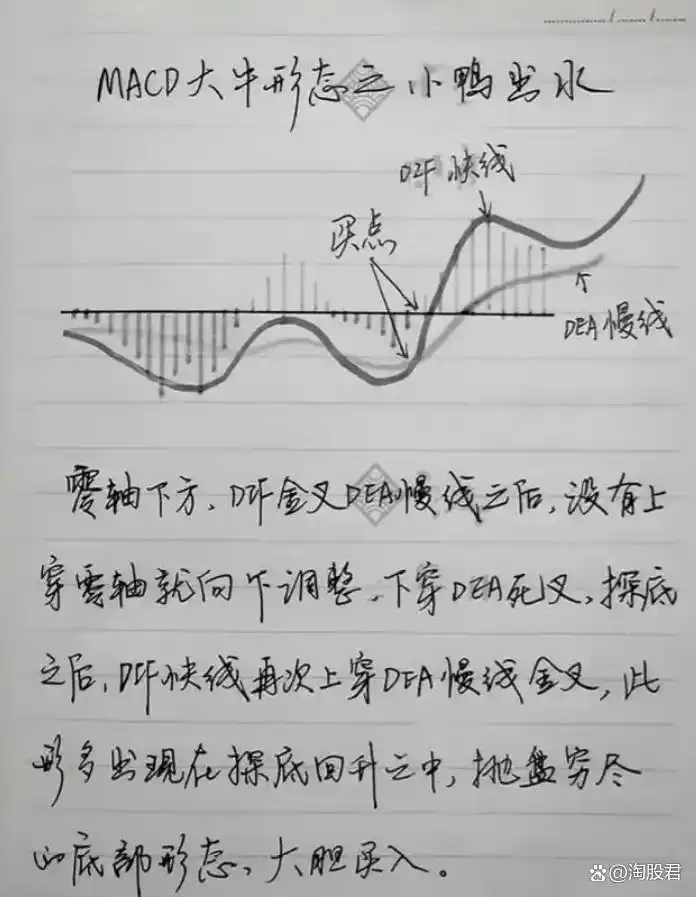 MACD大牛形态之小鸭出水
DIF快线
买点
DEA慢线
零轴下方，DIF金叉DEA慢线之后，没有上
穿零轴就向下调整，下穿DEA死叉，探底
之后，DIF快线再次上穿DEA慢线金叉，此
形多出现在探底回升之中，抛盘穷尽
的底部形态，大胆买入。
@淘股君